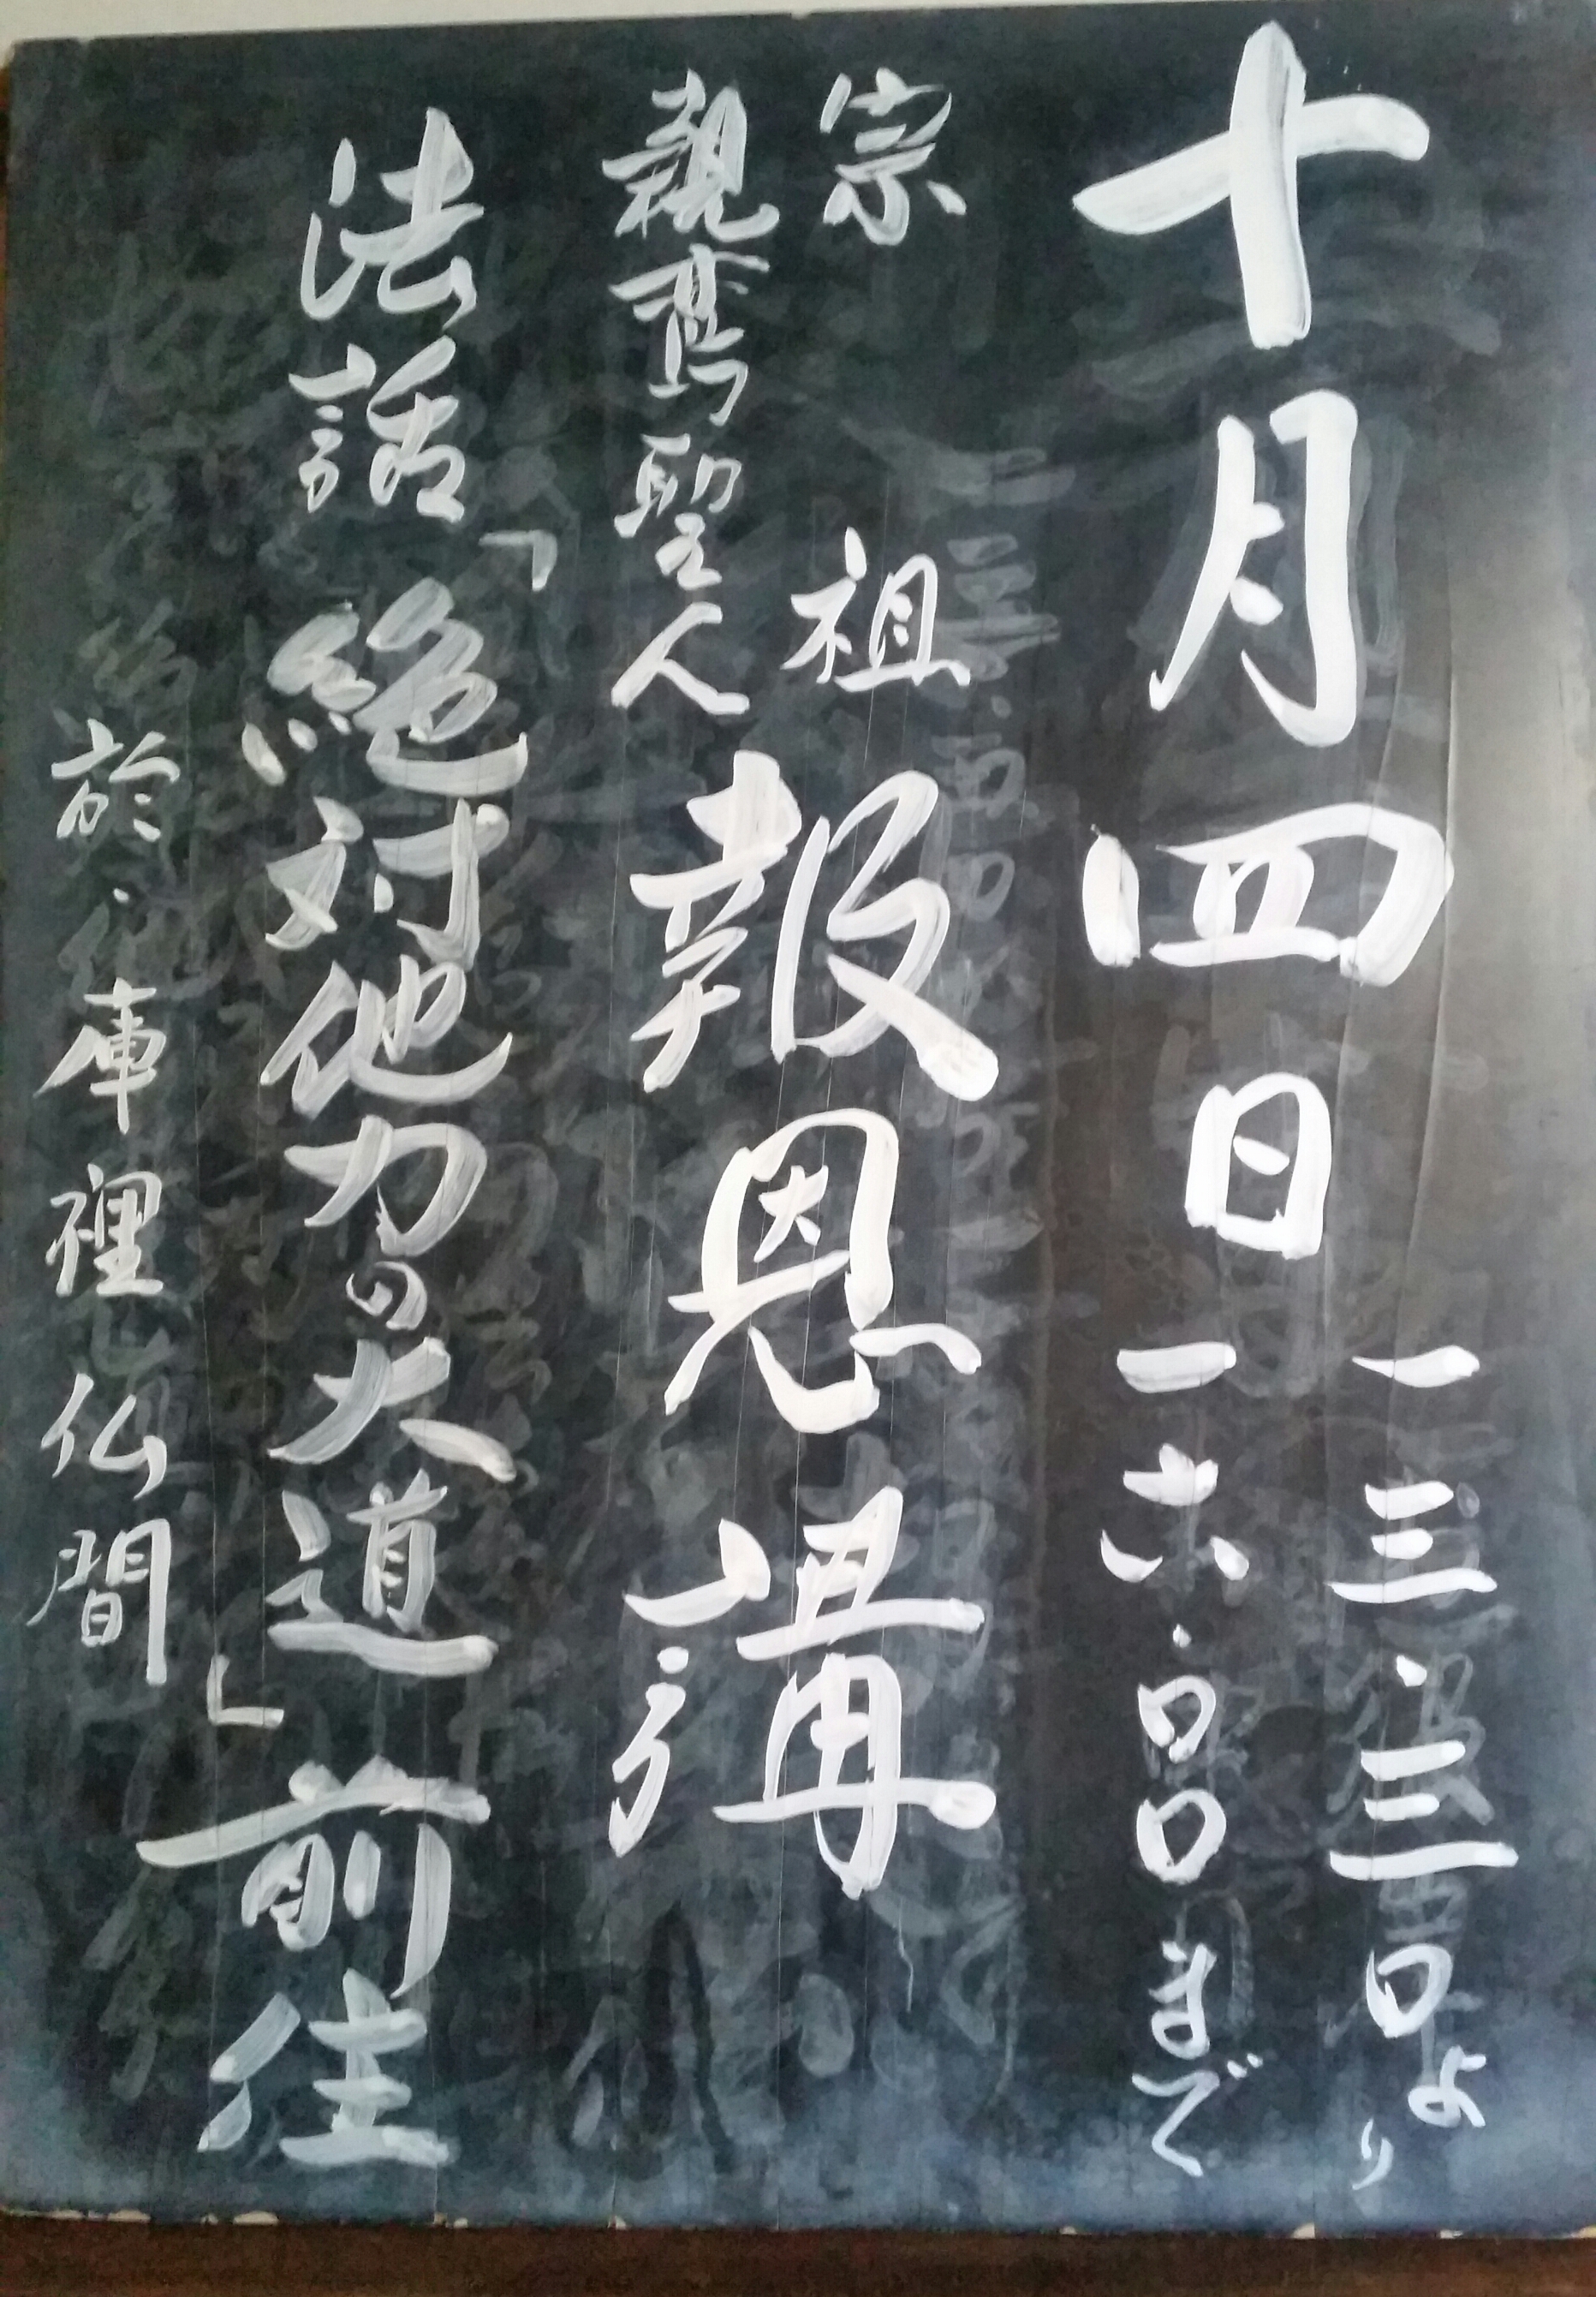 十月四日
一三、三〇より
一六、〇〇まで
宗祖
親鸞聖人
報恩講
法話「絶対他力の大道」前住
於、庫裡仏間